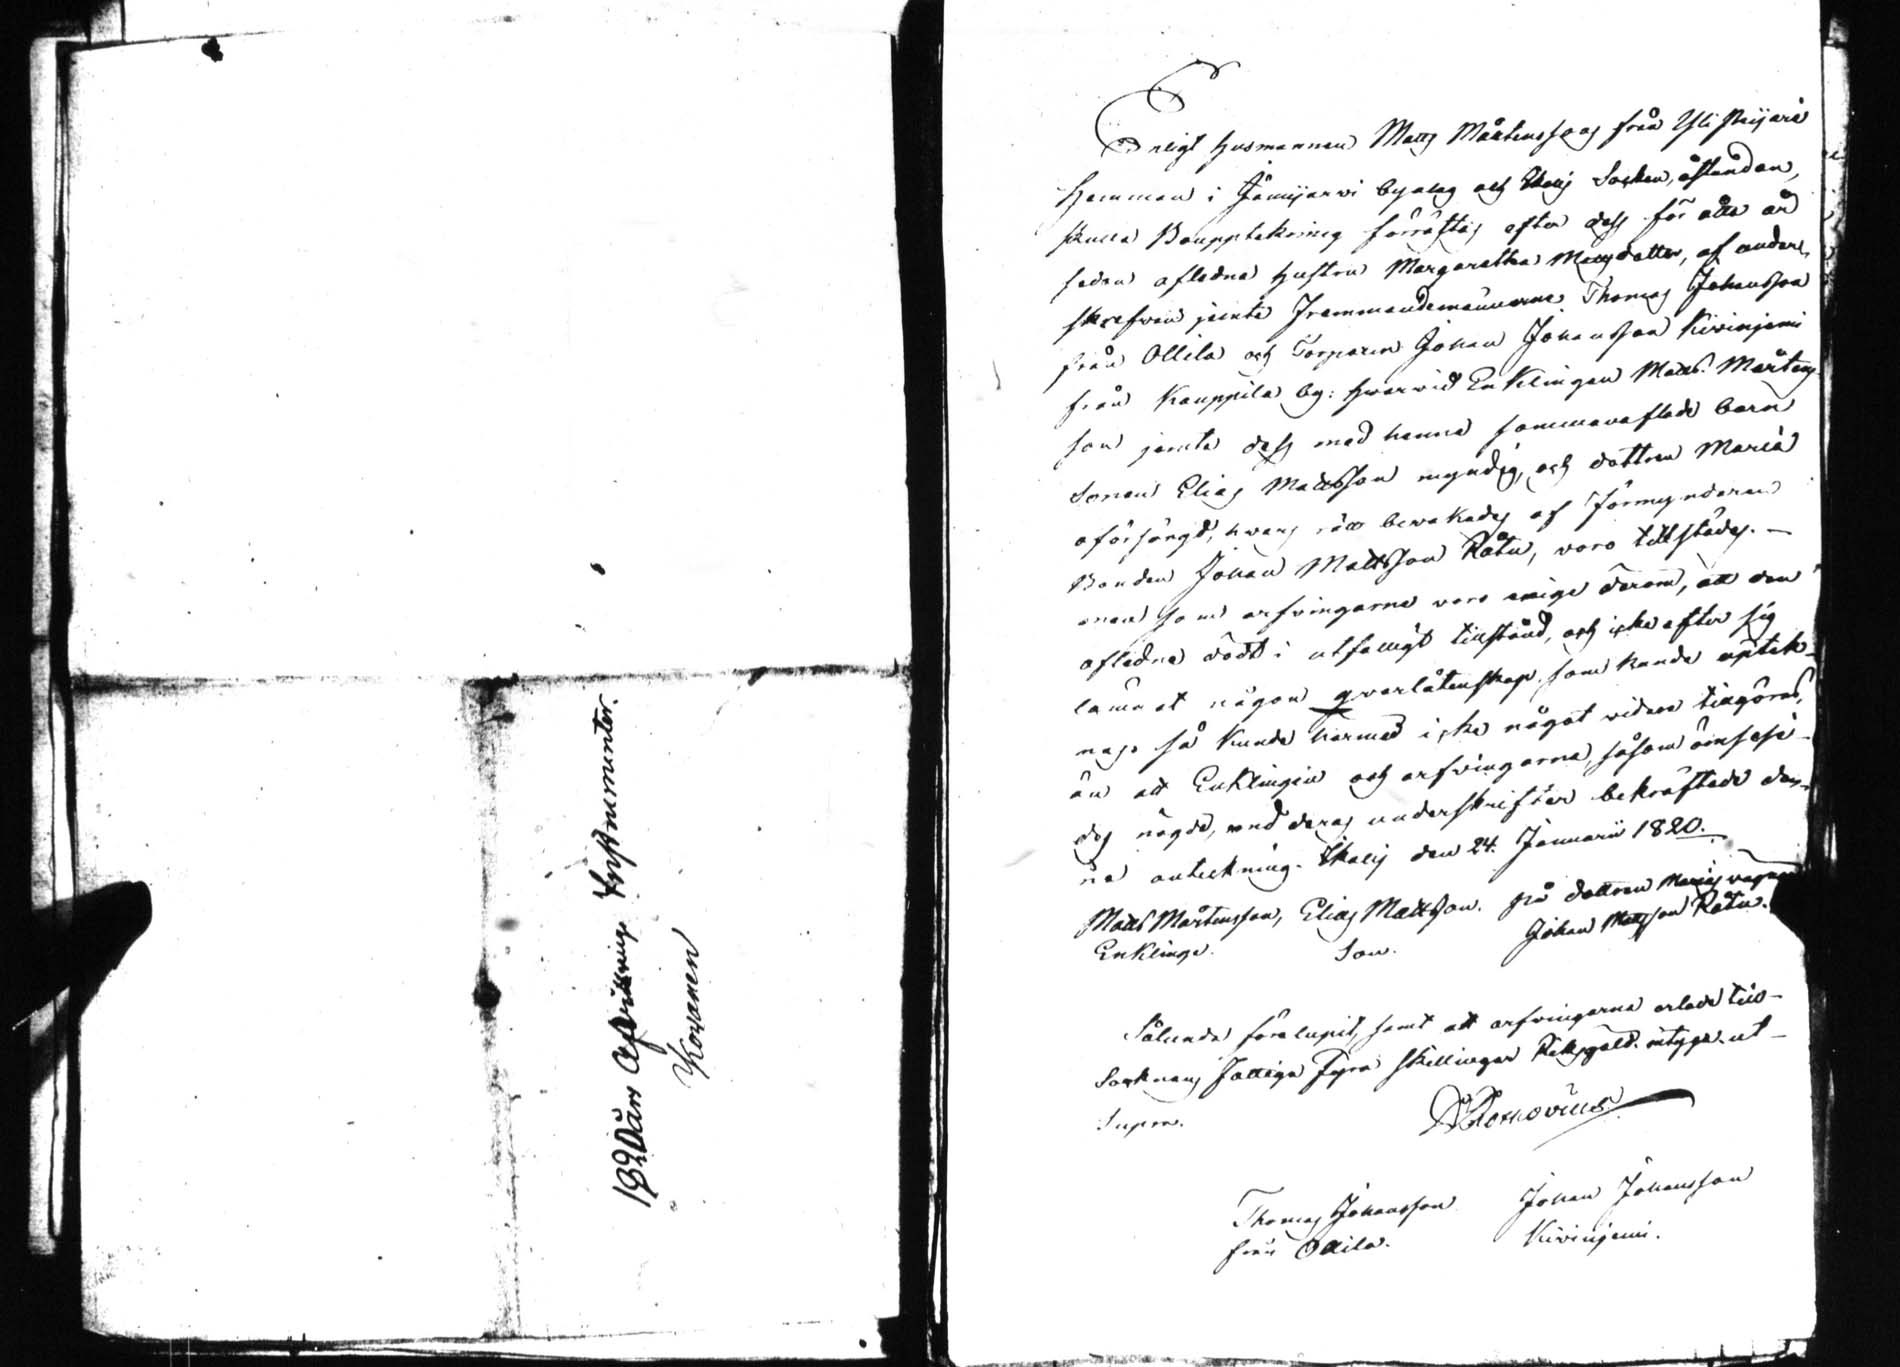 1820 års Afvittrings Instrumenter.
Koranen
Enligt Husmannen Matts Mårtenssons från Yli
Hemman i Jämijärvi byalag och Ikalis Socken, åstundan,
skulle Bouppteckning förrättas efter dess för åtta år
sedan afledna hustru Margaretha Matsdotter, af under-
skrefven jemte Fremmandemännerne Thomas Johansson
från Ollila och Torparen Johan Johansson Kivinjemi
från Kauppila by: hvarvid Enklingen Matts Mårtens-
son jemte dess med henne sammanaflade barn
Sonen Elias Mattsson myndig, och dottren Maria
oförsörgd, hvars rätt bevakades af Förmyndaren
Bonden Johan Mattsson Rätu, voro tillstädes. —
men som arfvingarne voro enige derom, att den
afledna dödt i utfattigt tillstånd, och icke efter sig
lämnat någon qvarlåtenskap, som kunde uptek-
nas, så kunde härmed icke något vidare tillgöras,
än att Enklingen och arfvingarna, såsom ömsesi-
des nögde, med deras underskrifter bekräftade den-
na anteckning. Ikalis den 24. Januarii 1820.
Matts Mårtensson, Elias Mattsson. på dottren Marias vägnar
Enklinge. Son. Johan Mattsson Rätu.
Sålunda förelupit, samt att arfvingarna erlade till
Socknens fattiga Fyra skillingar Riksgäld. intygar. ut
Supra.
Thomas Johansson Johan Johansson
från Ollila. Kivinjemi.